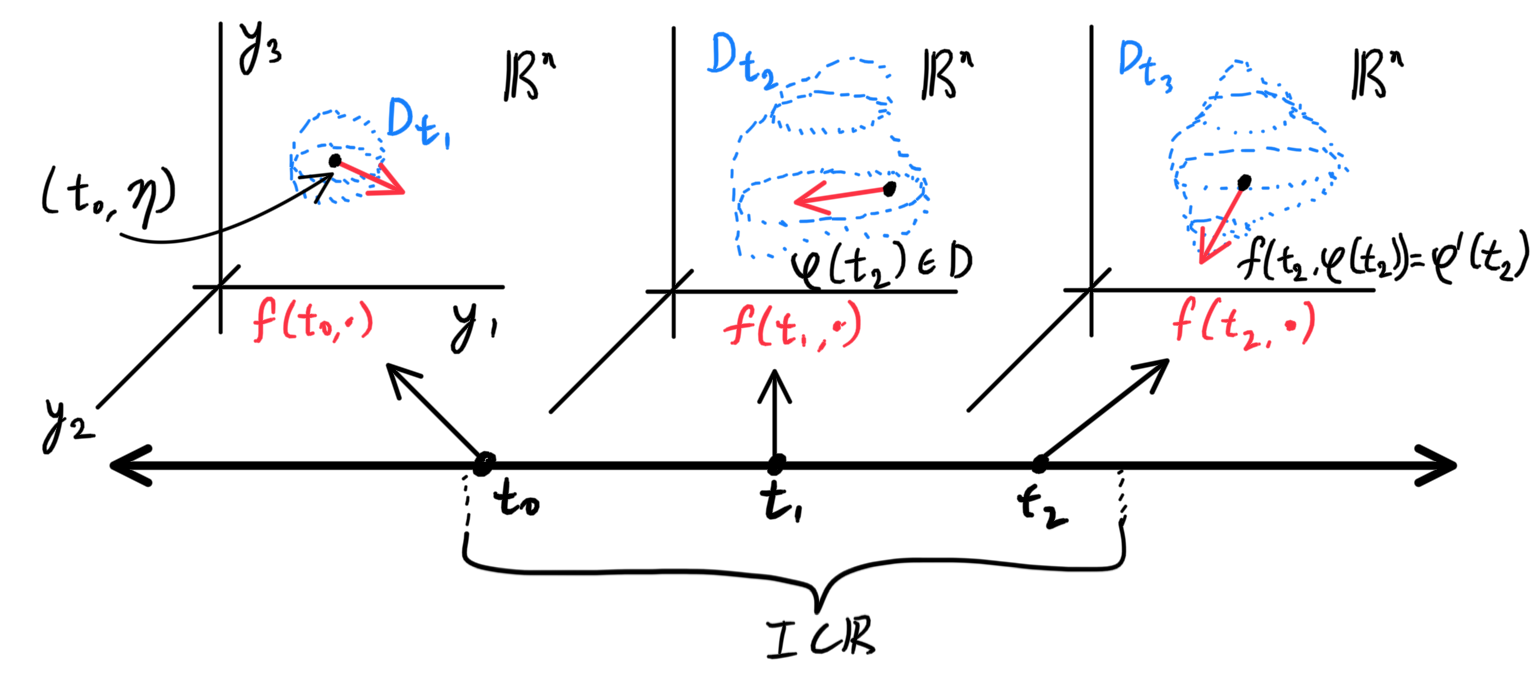 y₃
ℝⁿ
D_t₁
(t₀, η)
f(t₀, ·)
y₁
y₂
D_t₂
ℝⁿ
φ(t₂) ∈ D
f(t₁, ·)
D_t₃
ℝⁿ
f(t₂, φ(t₂)) = φ'(t₂)
f(t₂, ·)
t₀
t₁
t₂
I ⊂ ℝ